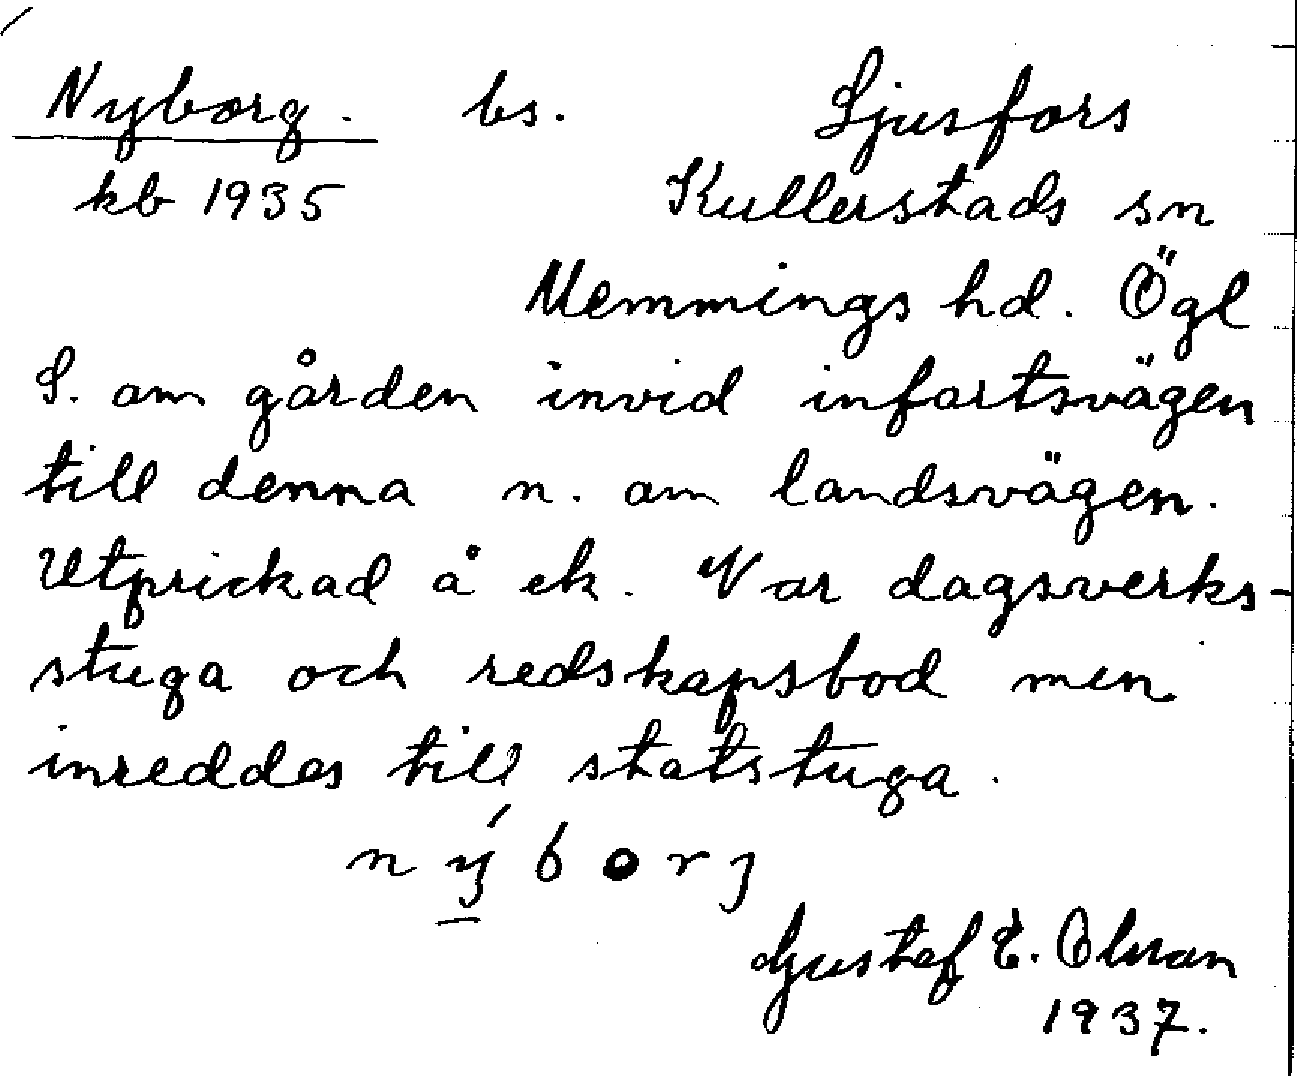 Nyborg. bs. Ljusfors
kb 1935 Kullerstads sn
Memmings hd. Ögl
S. om gården invid infartsvägen
till denna n. om landsvägen.
Utprickad å ek. Var dagsverks-
stuga och redskapsbod men
inreddes till statstuga.
n ý b o r j
Gustaf E. Olsson
1937.